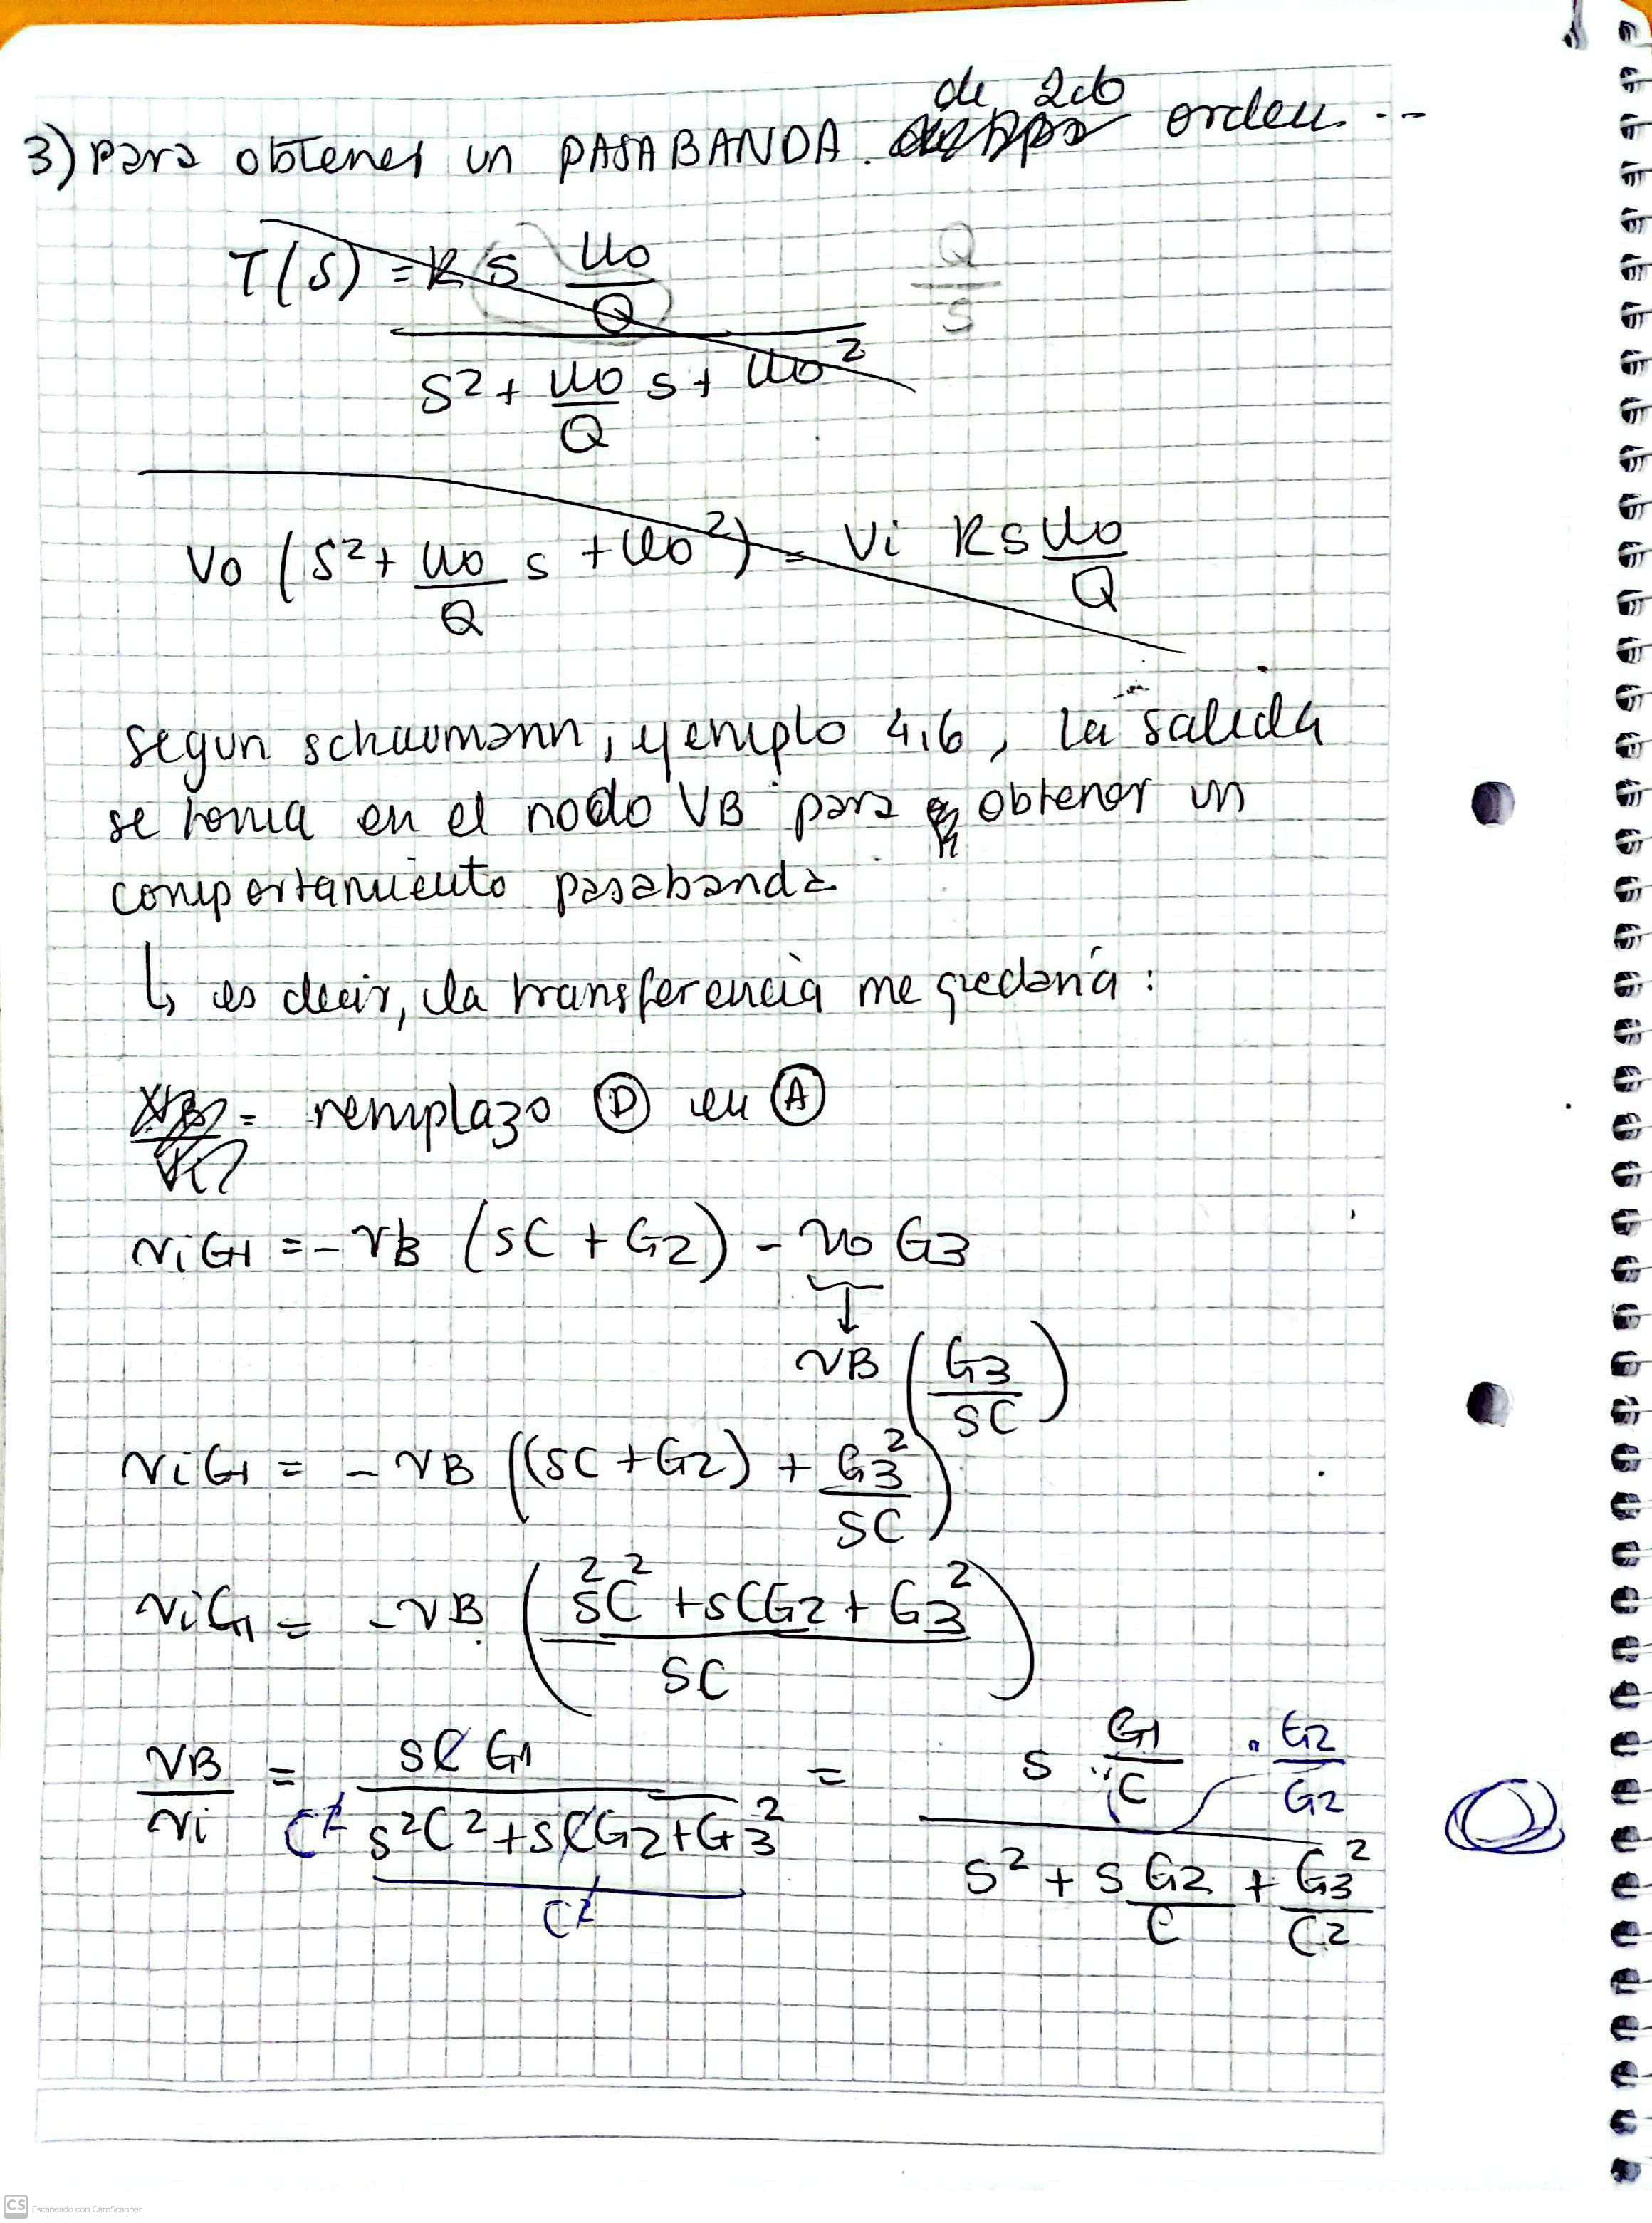 3) Para obtener un PASABANDA. de 2do orden...
T(s) = k s ωo/Q / (s² + ωo/Q s + ωo²)
Q/s
Vo (s² + ωo/Q s + ωo²) = Vi k s ωo/Q
segun schaumann, ejemplo 4.6, la salida
se toma en el nodo VB para obtener un
comportamiento pasabanda
↳ es decir, la transferencia me quedaría:
= remplazo Ⓓ en Ⓐ
viG1 = - vB (sC + G2) - vo G3
↓
vB (G3/sC)
viG1 = - vB ((sC + G2) + G3²/sC)
viG1 = - vB ((s²C² + sCG2 + G3²)/sC)
vB/vi = sC G1 / C² (s²C² + sCG2 + G3²)/C² = s G1/C · G2/G2 / (s² + s G2/C + G3²/C²)
CS Escaneado con CamScanner